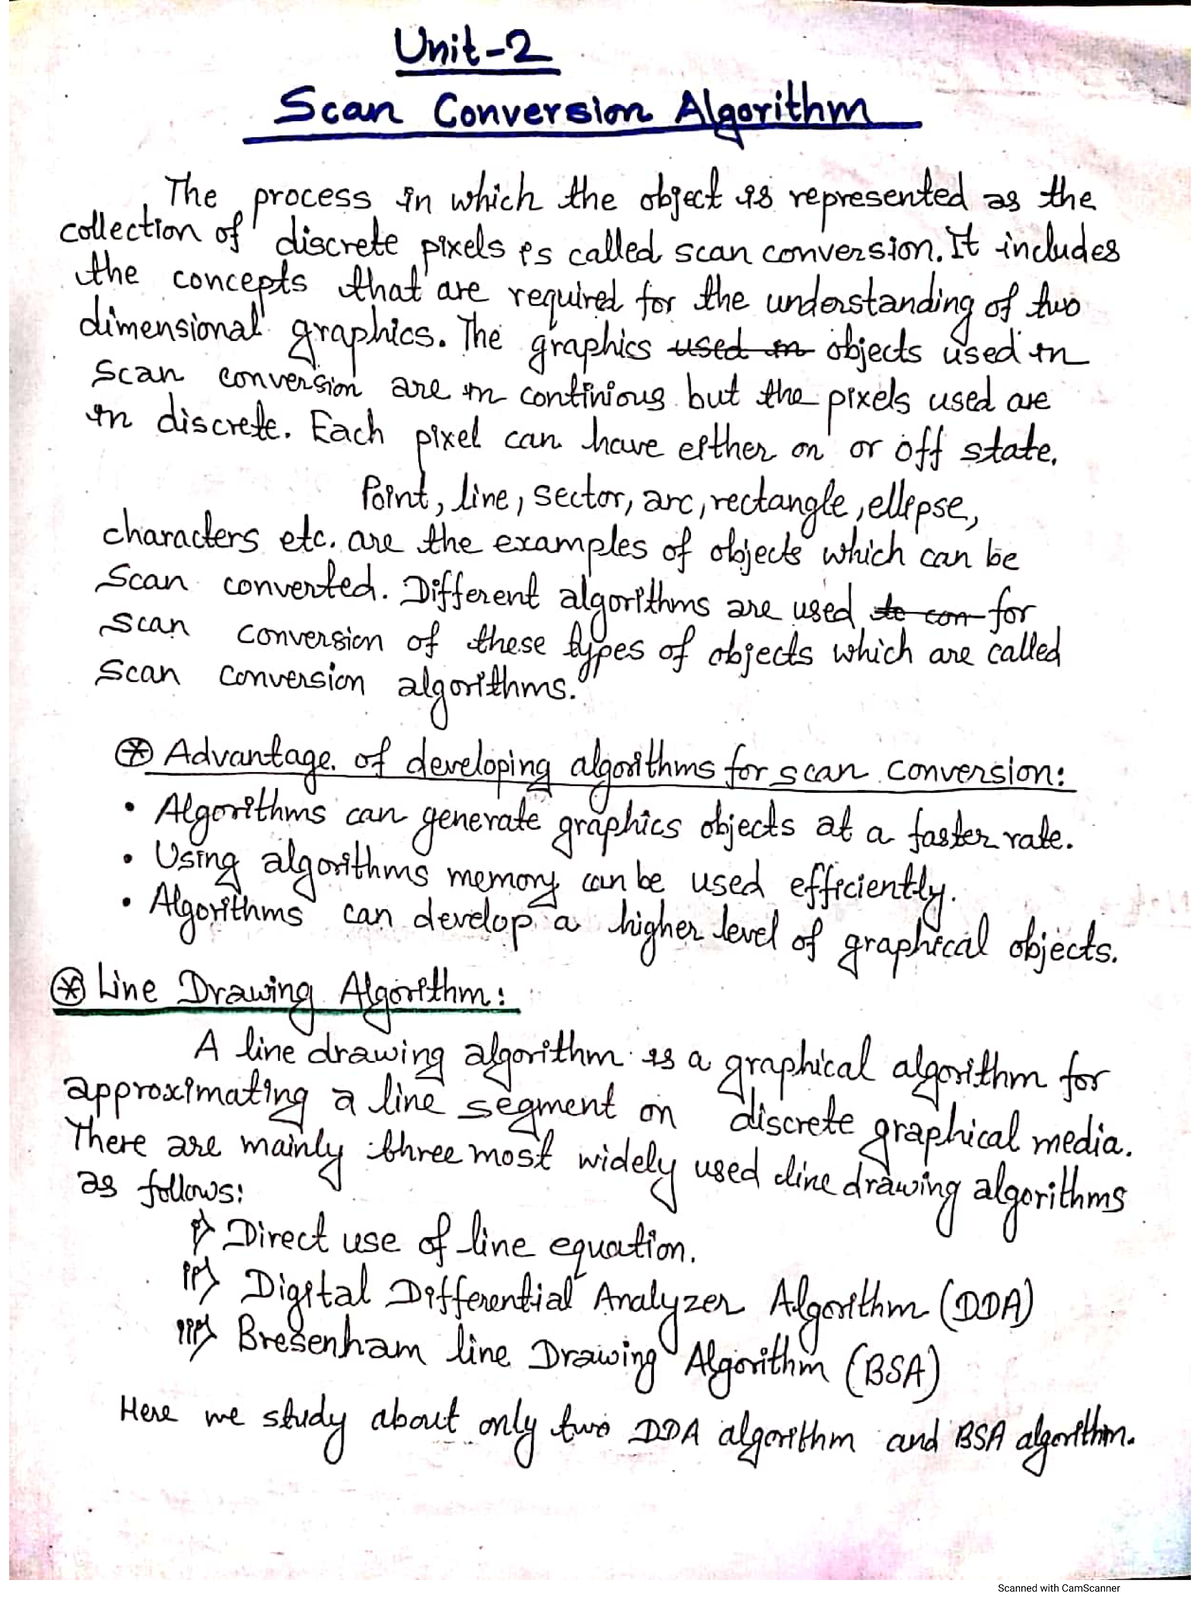 Unit-2
Scan Conversion Algorithm
The process in which the object is represented as the
collection of discrete pixels is called scan conversion. It includes
the concepts that are required for the understanding of two
dimensional graphics. The graphics used in objects used in
Scan conversion are in continious but the pixels used are
in discrete. Each pixel can have either on or off state.
Point, line, sector, arc, rectangle, ellipse,
characters etc. are the examples of objects which can be
Scan converted. Different algorithms are used to con for
scan conversion of these types of objects which are called
Scan conversion algorithms.
⊛ Advantage of developing algorithms for scan conversion:
• Algorithms can generate graphics objects at a faster rate.
• Using algorithms memory can be used efficiently.
• Algorithms can develop a higher level of graphical objects.
⊛ Line Drawing Algorithm:
A line drawing algorithm is a graphical algorithm for
approximating a line segment on discrete graphical media.
There are mainly three most widely used line drawing algorithms
as follows:
i) Direct use of line equation.
ii) Digital Differential Analyzer Algorithm (DDA)
iii) Bresenham line Drawing Algorithm (BSA)
Here we study about only two DDA algorithm and BSA algorithm.
Scanned with CamScanner